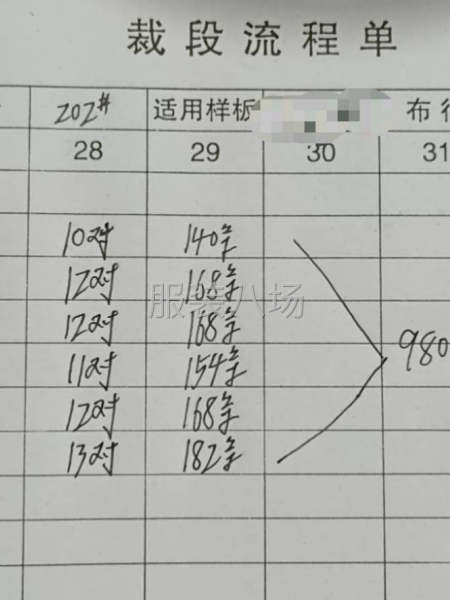 裁段流程单
202# 适用样板 布行
28 29 30 31
10对 140条
12对 168条
12对 168条
980
11对 154条
12对 168条
13对 182条
服装八场